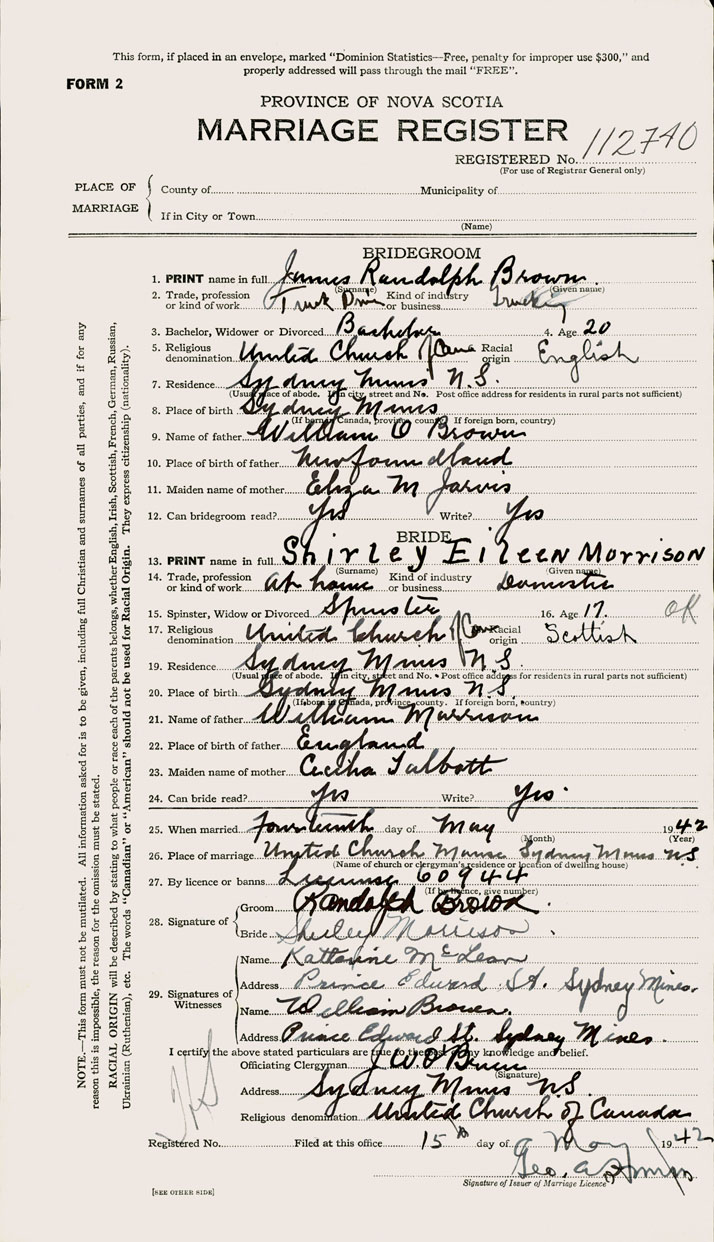 This form, if placed in an envelope, marked "Dominion Statistics—Free, penalty for improper use $300," and
properly addressed will pass through the mail "FREE".
FORM 2
PROVINCE OF NOVA SCOTIA
MARRIAGE REGISTER
REGISTERED No. 112740
(For use of Registrar General only)
PLACE OF MARRIAGE
County of Municipality of
If in City or Town
(Name)
BRIDEGROOM
1. PRINT name in full James Randolph Brown
(Surname) (Given name)
2. Trade, profession or kind of work Truck Driver Kind of industry or business Trucking
3. Bachelor, Widower or Divorced Bachelor 4. Age 20
5. Religious denomination United Church of Cana Racial origin English
7. Residence Sydney Mines N.S.
(Usual place of abode. If in city, street and No. Post office address for residents in rural parts not sufficient)
8. Place of birth Sydney Mines
(If born in Canada, province, county. If foreign born, country)
9. Name of father William O Brown
10. Place of birth of father Newfoundland
11. Maiden name of mother Eliza M Jarvis
12. Can bridegroom read? Yes Write? Yes
BRIDE
13. PRINT name in full Shirley EilEEN MORRISON
(Surname) (Given name)
14. Trade, profession or kind of work At home Kind of industry or business Domestic
15. Spinster, Widow or Divorced Spinster 16. Age 17 OK
17. Religious denomination United Church of Can Racial origin Scottish
19. Residence Sydney Mines N.S.
(Usual place of abode. If in city, street and No. Post office address for residents in rural parts not sufficient)
20. Place of birth Sydney Mines N.S.
(If born in Canada, province, county. If foreign born, country)
21. Name of father William Morrison
22. Place of birth of father England
23. Maiden name of mother Cecilia Talbott
24. Can bride read? Yes Write? Yes
25. When married fourteenth day of May 1942
(Month) (Year)
26. Place of marriage United Church Manse Sydney Mines NS
(Name of church or clergyman's residence or location of dwelling house)
27. By licence or banns License 60944
(If by licence, give number)
28. Signature of
Groom Randolph Brown
Bride Shirley Morrison
29. Signatures of Witnesses
Name Katherine McLean
Address Prince Edward St. Sydney Mines.
Name William Brown.
Address Prince Edward St. Sydney Mines.
I certify the above stated particulars are true to the best of my knowledge and belief.
Officiating Clergyman
(Signature)
Address Sydney Mines NS
Religious denomination United Church of Canada
Registered No. Filed at this office 15th day of May 1942
Geo. A
Signature of Issuer of Marriage Licence
[SEE OTHER SIDE]
NOTE.—This form must not be mutilated. All information asked for is to be given, including full Christian and surnames of all parties, and if for any
reason this is impossible, the reason for the omission must be stated.
RACIAL ORIGIN will be described by stating to what people or race each of the parents belongs, whether English, Irish, Scottish, French, German, Russian,
Ukrainian (Ruthenian), etc. The words "Canadian" or "American" should not be used for Racial Origin. They express citizenship (nationality).